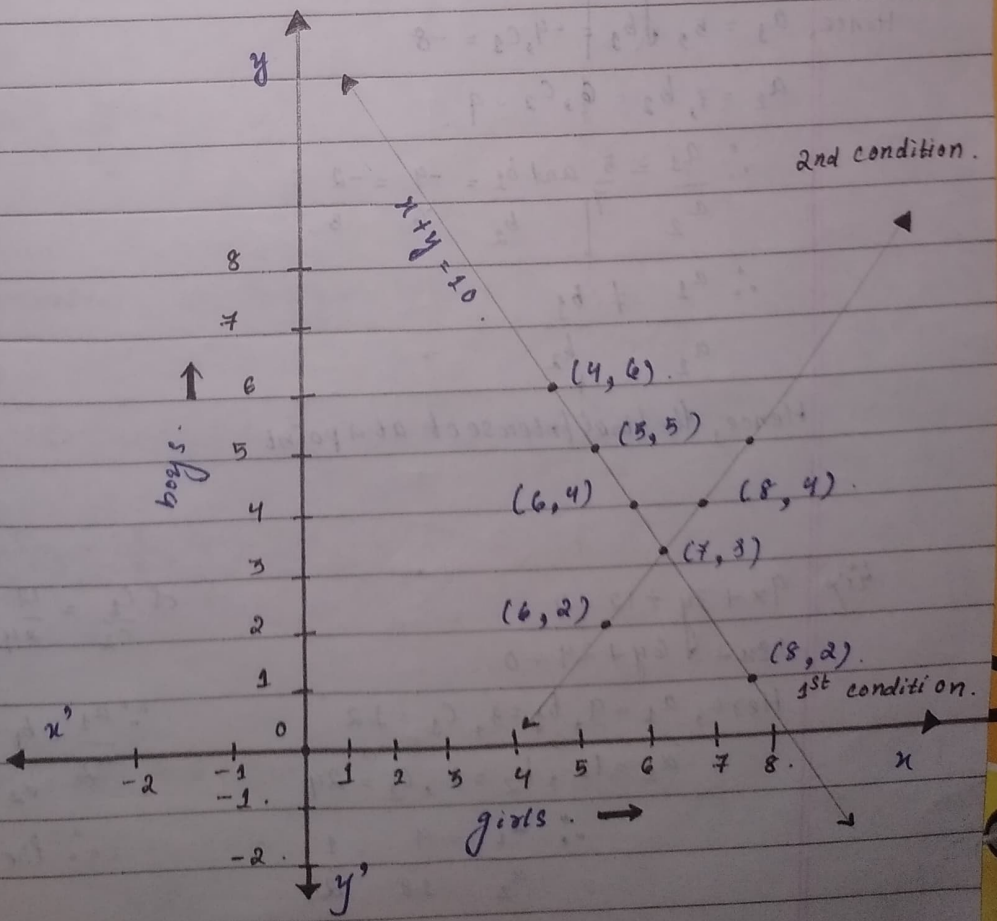 y
2nd condition.
x+y=10.
8
7
6
(4, 6).
boys.
5
(5, 5)
4
(6, 4)
(8, 4).
3
(7, 3)
2
(6, 2)
1
(8, 2).
1st condition.
x'
0
-2
-1
1
2
3
4
5
6
7
8.
x
-1.
girls.
-2.
y'